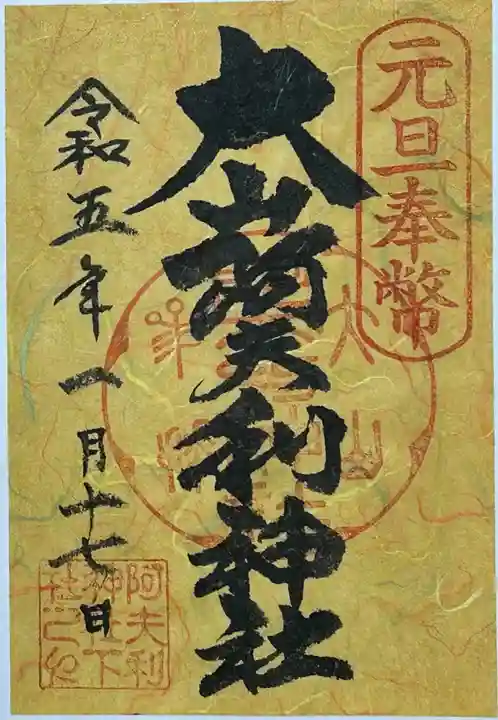 元旦奉幣
大山阿夫利神社
令和五年一月十七日
阿夫利
神社下
社